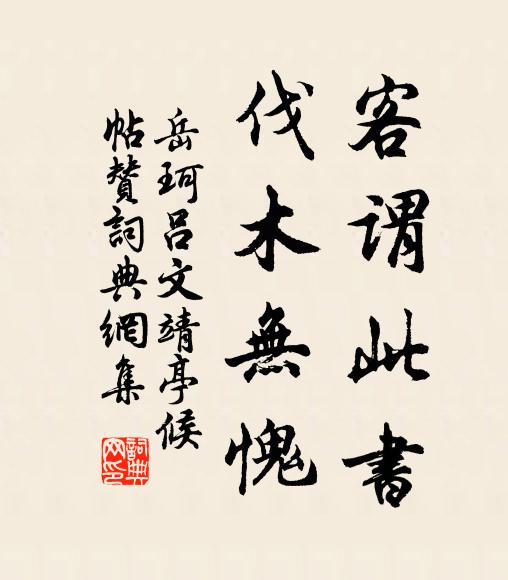 客谓此書
伐木無愧
岳珂呂文靖亭候
帖贊詞典網集
詞典网印